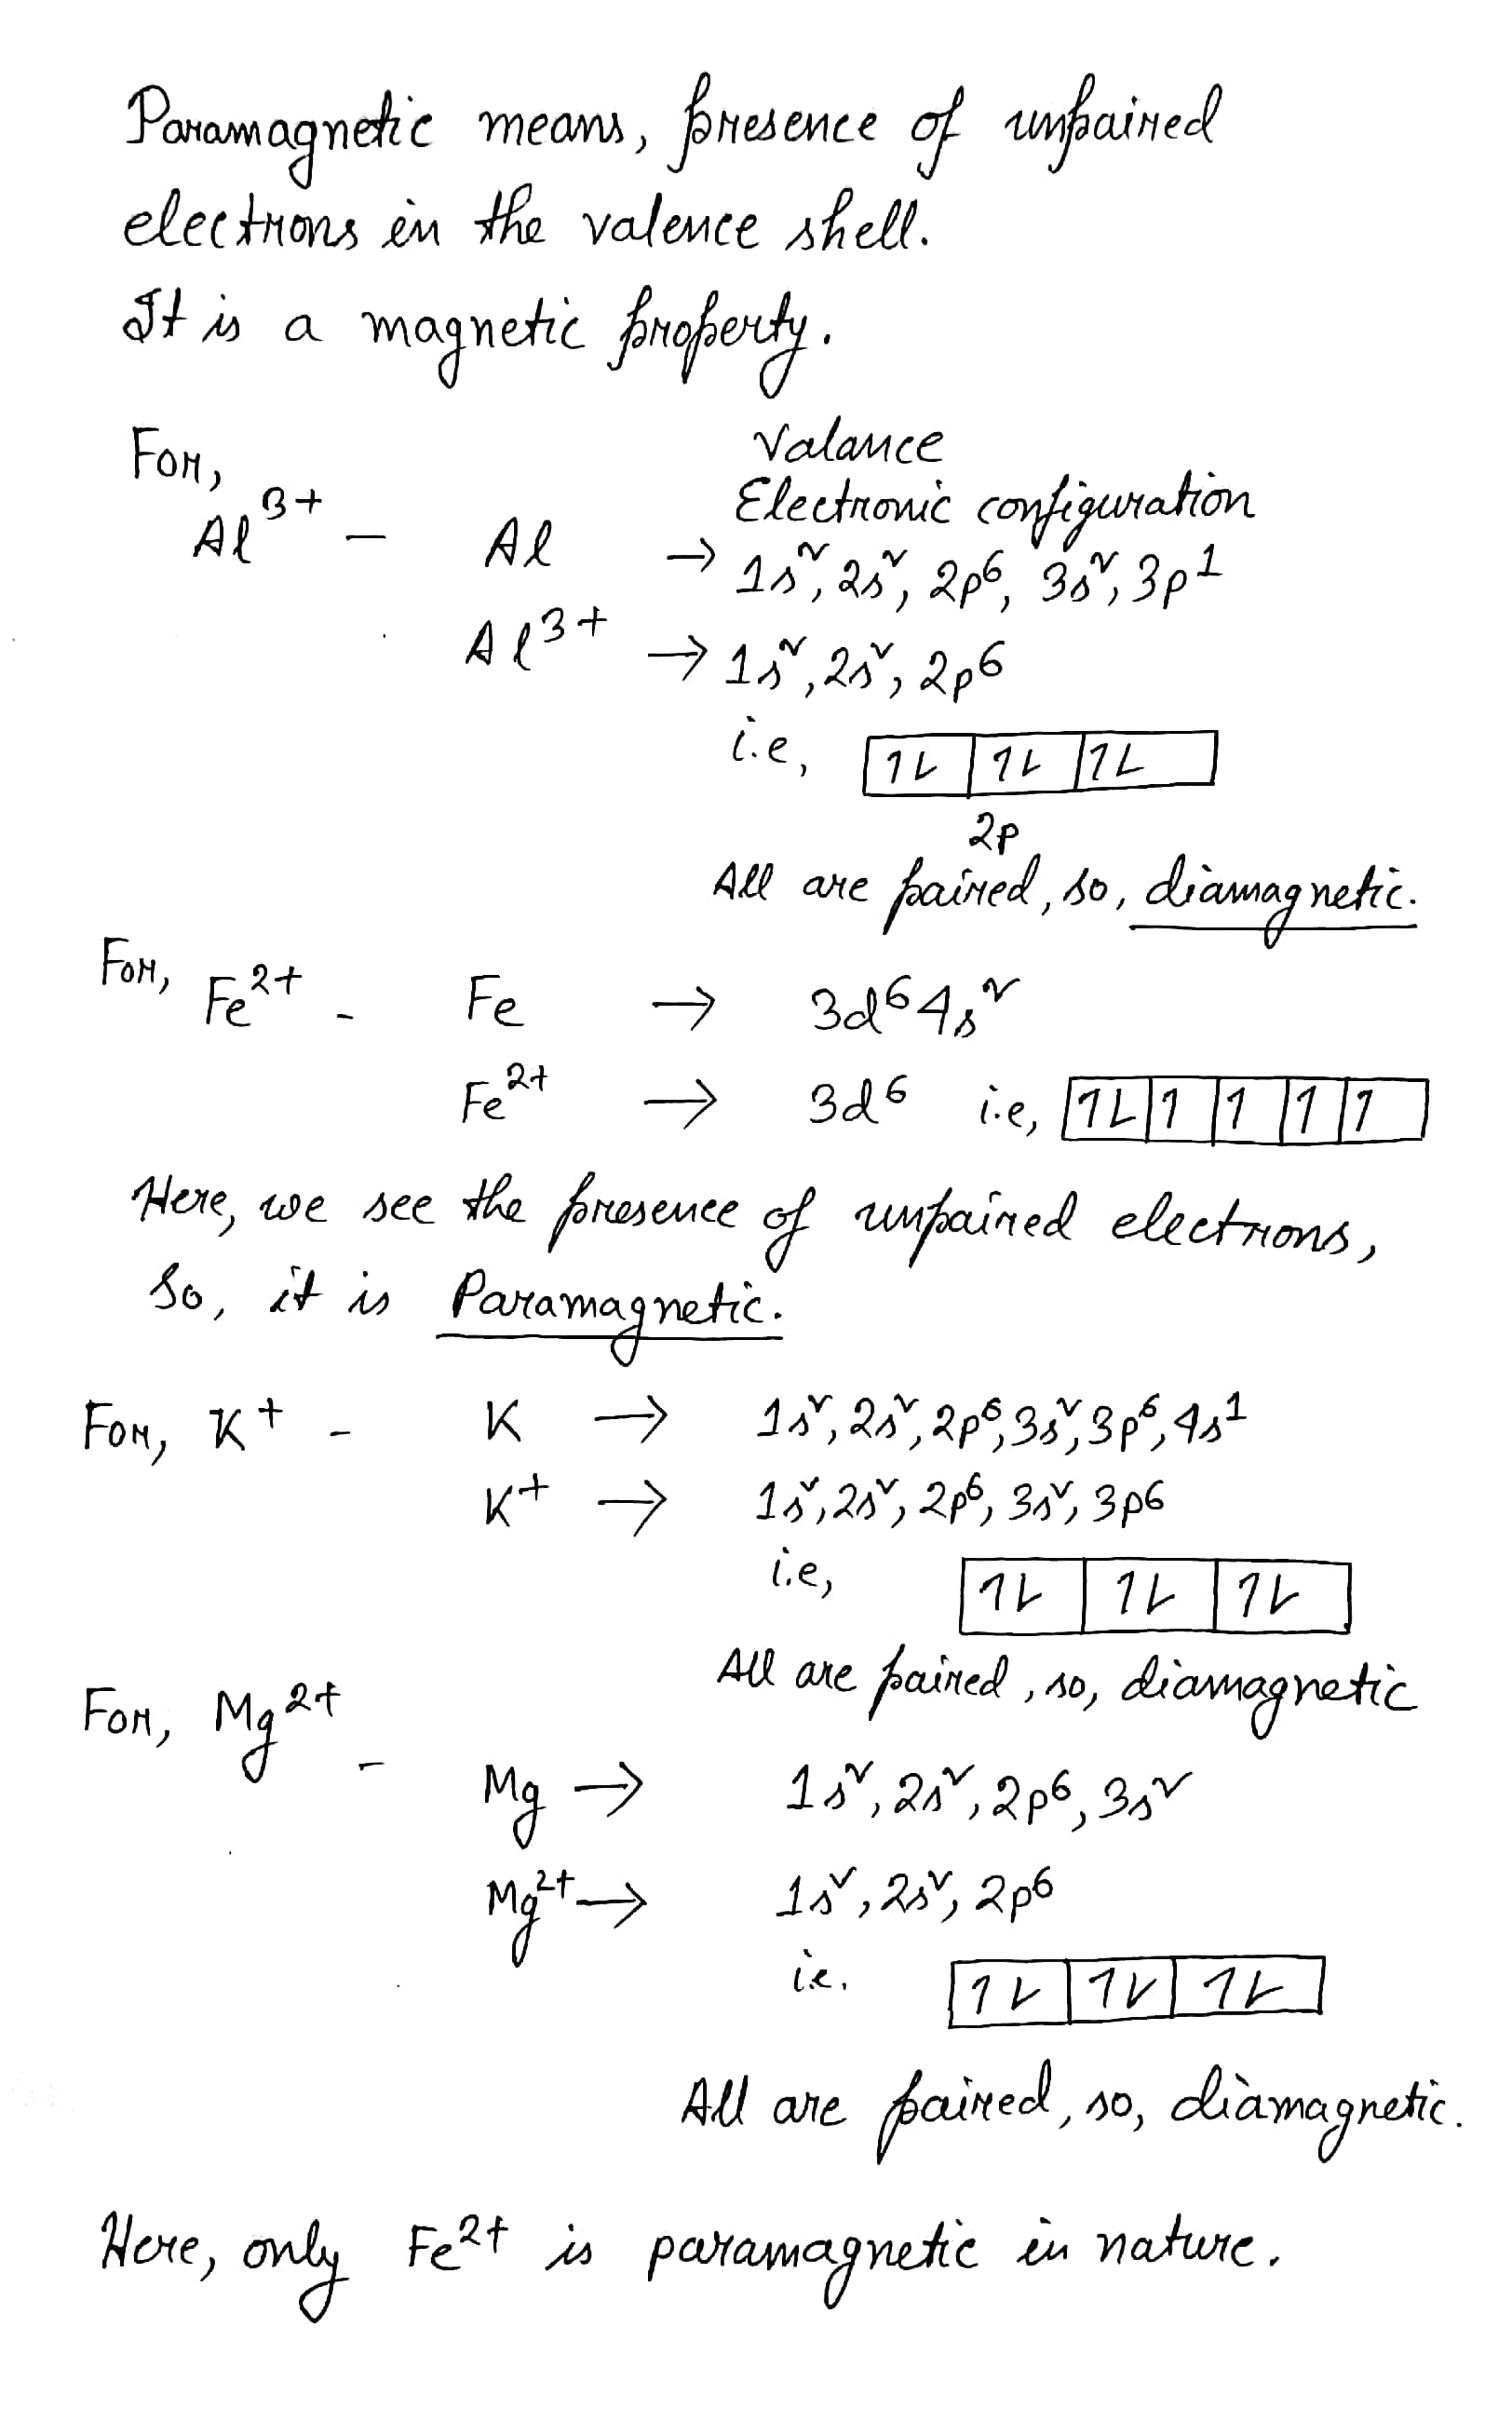 Paramagnetic means, presence of unpaired
electrons in the valence shell.
It is a magnetic property.
For,
Valance
Electronic configuration
Al³⁺ - Al → 1s², 2s², 2p⁶, 3s², 3p¹
Al³⁺ → 1s², 2s², 2p⁶
i.e, 1L 1L 1L
2p
All are paired, so, diamagnetic.
For, Fe²⁺ - Fe → 3d⁶4s²
Fe²⁺ → 3d⁶ i.e, 1L 1 1 1 1
Here, we see the presence of unpaired electrons,
So, it is Paramagnetic.
For, K⁺ - K → 1s², 2s², 2p⁶, 3s², 3p⁶, 4s¹
K⁺ → 1s², 2s², 2p⁶, 3s², 3p6
i.e, 1L 1L 1L
All are paired, so, diamagnetic
For, Mg²⁺ - Mg → 1s², 2s², 2p⁶, 3s²
Mg²⁺ → 1s², 2s², 2p⁶
i.e. 1L 1L 1L
All are paired, so, diamagnetic.
Here, only Fe²⁺ is paramagnetic in nature.